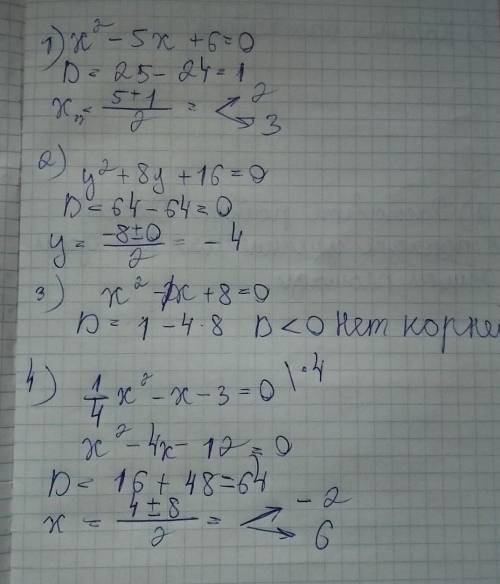 1) x² - 5x + 6 = 0
D = 25 - 24 = 1
x = (5 ± 1)/2 = < 2
3
2) y² + 8y + 16 = 0
D = 64 - 64 = 0
y = (-8 ± 0)/2 = -4
3) x² - x + 8 = 0
D = 1 - 4·8 D < 0 Нет корне
4) 1/4 x² - x - 3 = 0 \·4
x² - 4x - 12 = 0
D = 16 + 48 = 64
x = (4 ± 8)/2 = < -2
6